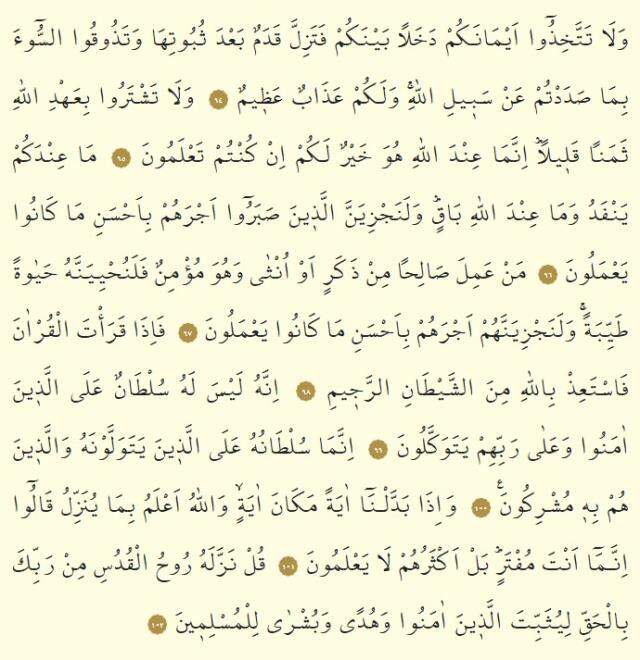 وَلَا تَتَّخِذُٓوا اَيْمَانَكُمْ دَخَلًا بَيْنَكُمْ فَتَزِلَّ قَدَمٌ بَعْدَ ثُبُوتِهَا وَتَذُوقُوا السُّٓوءَ
بِمَا صَدَدْتُمْ عَنْ سَب۪يلِ اللّٰهِۚ وَلَكُمْ عَذَابٌ عَظ۪يمٌ ﴿٩٤﴾ وَلَا تَشْتَرُوا بِعَهْدِ اللّٰهِ
ثَمَنًا قَل۪يلًاۜ اِنَّمَا عِنْدَ اللّٰهِ هُوَ خَيْرٌ لَكُمْ اِنْ كُنْتُمْ تَعْلَمُونَ ﴿٩٥﴾ مَا عِنْدَكُمْ
يَنْفَدُ وَمَا عِنْدَ اللّٰهِ بَاقٍۜ وَلَنَجْزِيَنَّ الَّذ۪ينَ صَبَرُٓوا اَجْرَهُمْ بِاَحْسَنِ مَا كَانُوا
يَعْمَلُونَ ﴿٩٦﴾ مَنْ عَمِلَ صَالِحًا مِنْ ذَكَرٍ اَوْ اُنْثٰى وَهُوَ مُؤْمِنٌ فَلَنُحْيِيَنَّهُ حَيٰوةً
طَيِّبَةًۚ وَلَنَجْزِيَنَّهُمْ اَجْرَهُمْ بِاَحْسَنِ مَا كَانُوا يَعْمَلُونَ ﴿٩٧﴾ فَاِذَا قَرَأْتَ الْقُرْاٰنَ
فَاسْتَعِذْ بِاللّٰهِ مِنَ الشَّيْطَانِ الرَّج۪يمِ ﴿٩٨﴾ اِنَّهُ لَيْسَ لَهُ سُلْطَانٌ عَلَى الَّذ۪ينَ
اٰمَنُوا وَعَلٰى رَبِّهِمْ يَتَوَكَّلُونَ ﴿٩٩﴾ اِنَّمَا سُلْطَانُهُ عَلَى الَّذ۪ينَ يَتَوَلَّوْنَهُ وَالَّذ۪ينَ
هُمْ بِه۪ مُشْرِكُونَ۟ ﴿١٠٠﴾ وَاِذَا بَدَّلْنَٓا اٰيَةً مَكَانَ اٰيَةٍۙ وَاللّٰهُ اَعْلَمُ بِمَا يُنَزِّلُ قَالُٓوا
اِنَّمَٓا اَنْتَ مُفْتَرٍۜ بَلْ اَكْثَرُهُمْ لَا يَعْلَمُونَ ﴿١٠١﴾ قُلْ نَزَّلَهُ رُوحُ الْقُدُسِ مِنْ رَبِّكَ
بِالْحَقِّ لِيُثَبِّتَ الَّذ۪ينَ اٰمَنُوا وَهُدًى وَبُشْرٰى لِلْمُسْلِم۪ينَ ﴿١٠٢﴾